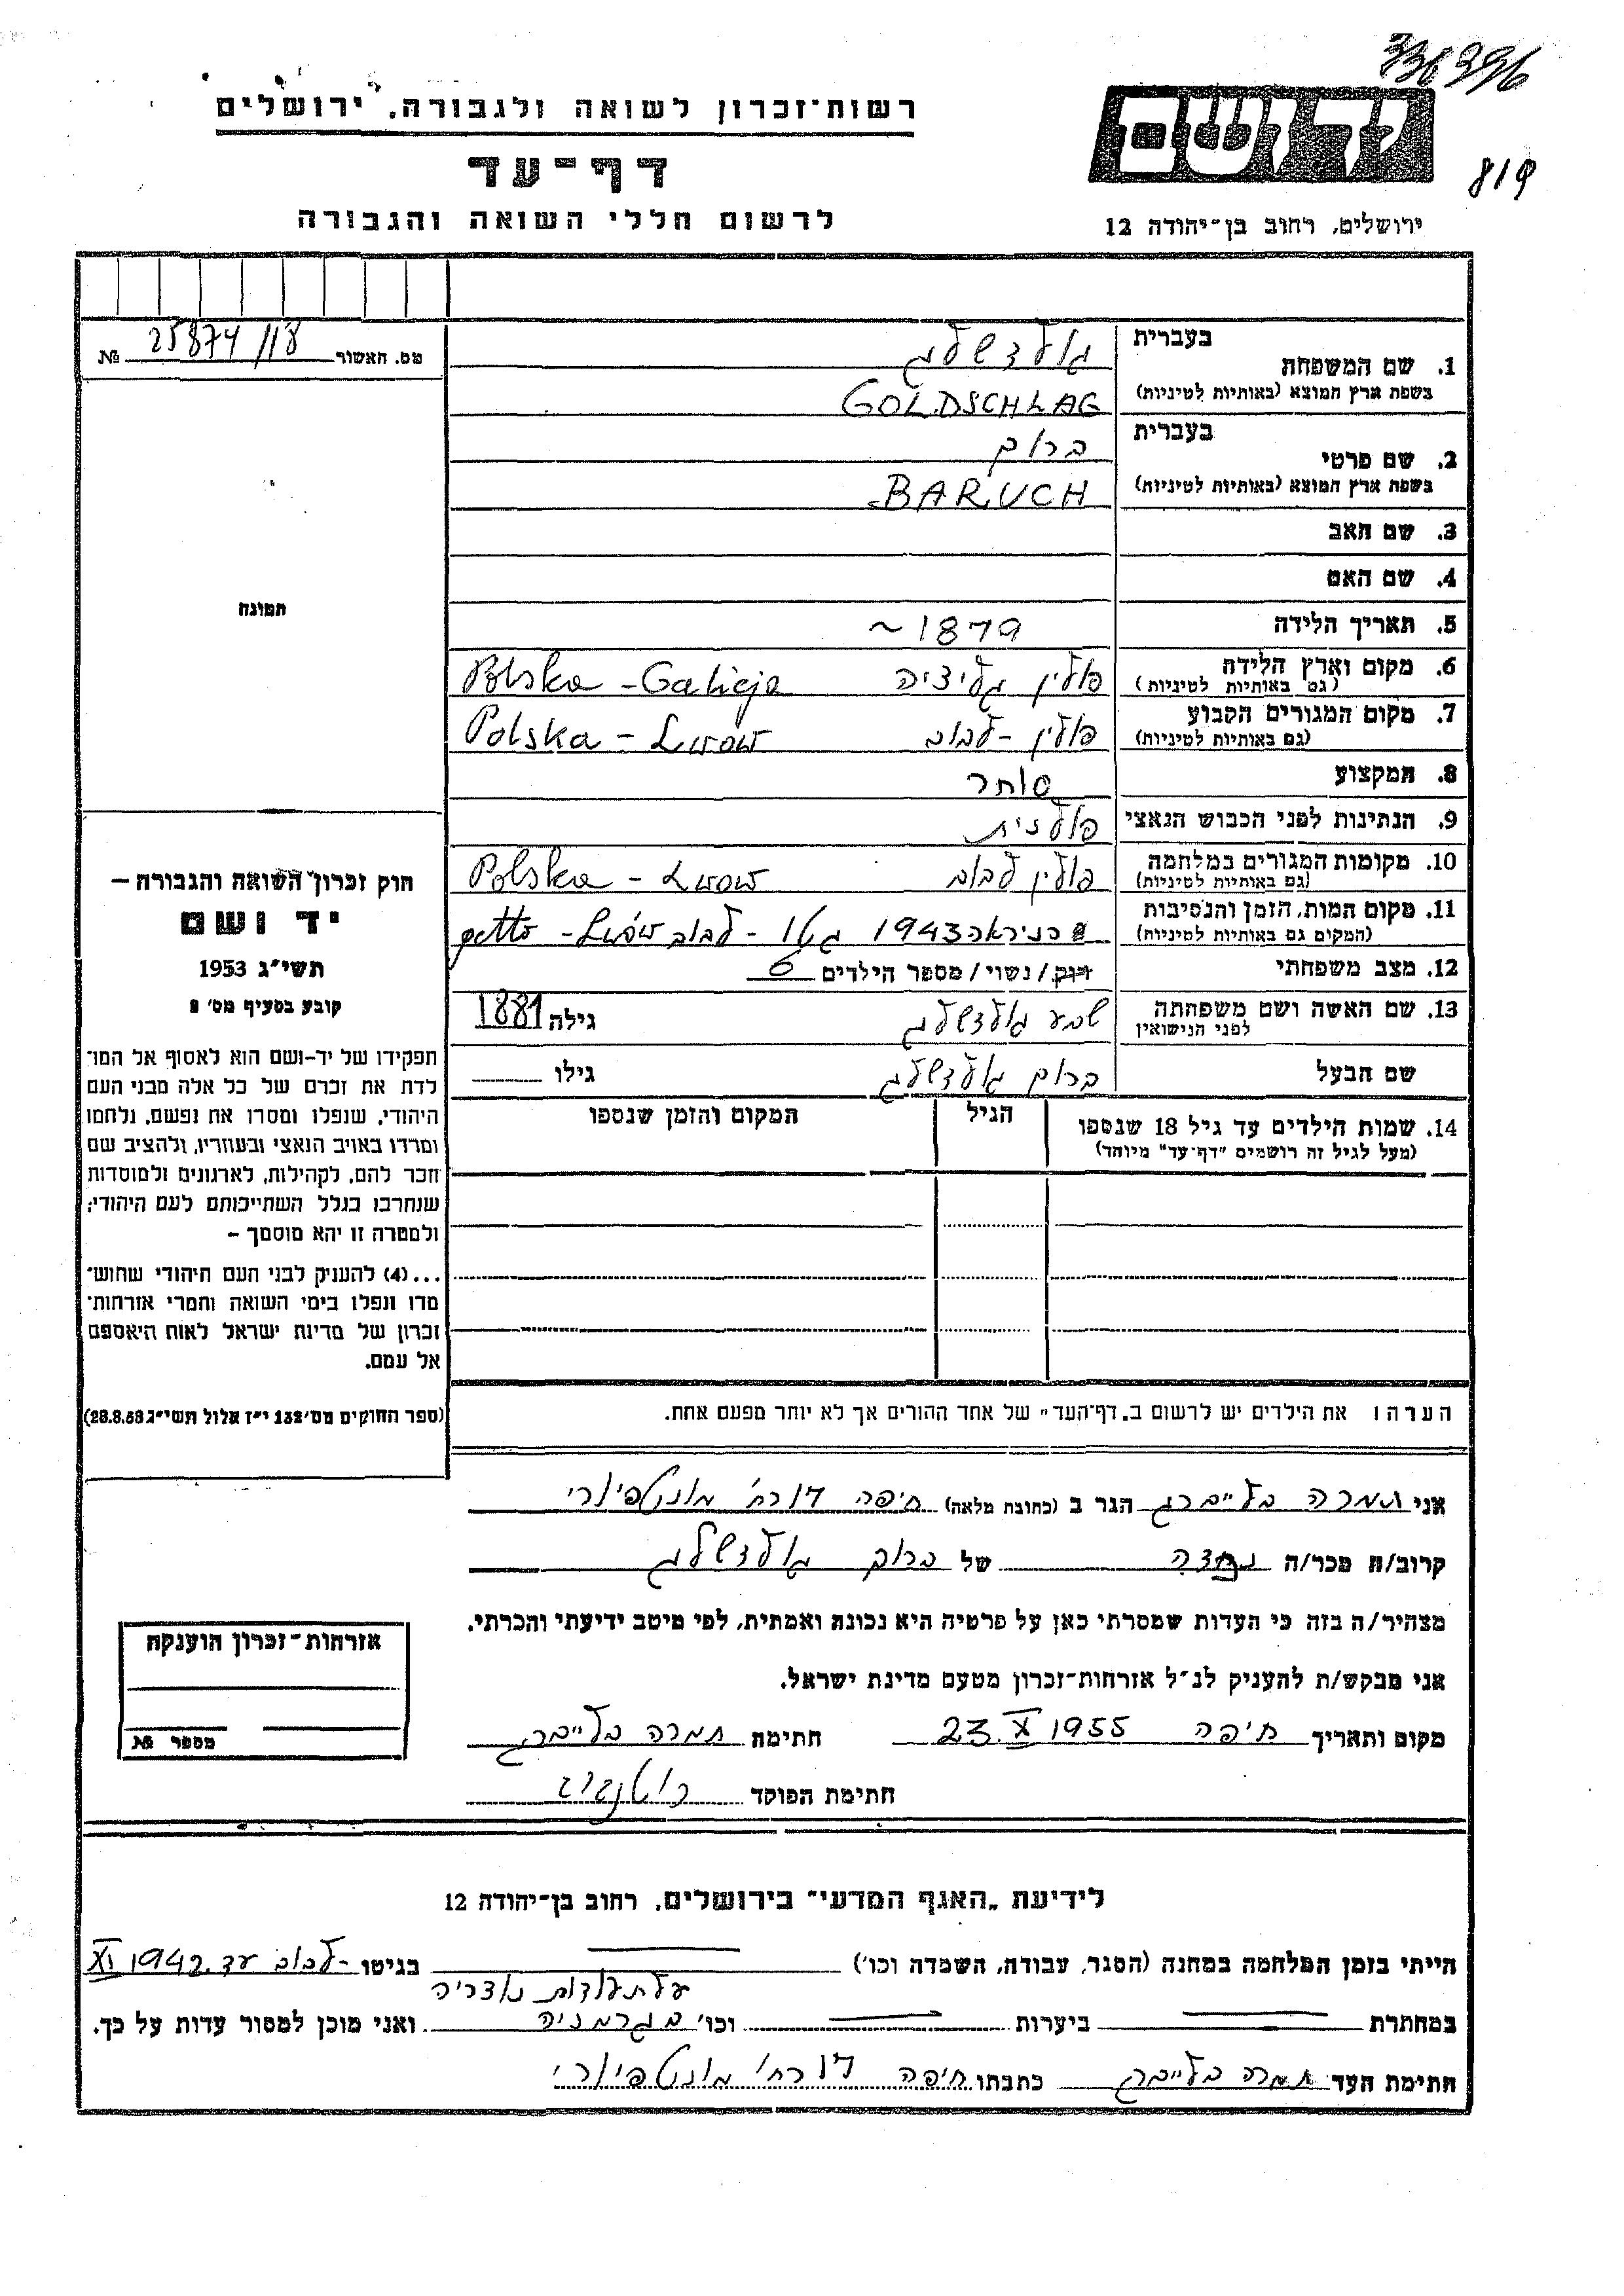 738396
819
יד ושם
ירושלים, רחוב בן־יהודה 12
רשות־זכרון לשואה ולגבורה, ירושלים
דף־עד
לרשום חללי השואה והגבורה
מס. האשור 25874/118 №
תמונה
1. שם המשפחה בעברית גולדשלג
בשפת ארץ המוצא (באותיות לטיניות) GOLDSCHLAG
2. שם פרטי בעברית ברוך
בשפת ארץ המוצא (באותיות לטיניות) BARUCH
3. שם האב
4. שם האם
5. תאריך הלידה ~1879
6. מקום וארץ הלידה (גם באותיות לטיניות) פולין גליציה Polska - Galicja
7. מקום המגורים הקבוע (גם באותיות לטיניות) פולין - לבוב Polska - Lwow
8. המקצוע סוחר
9. הנתינות לפני הכבוש הנאצי פולנית
10. מקומות המגורים במלחמה (גם באותיות לטיניות) פולין לבוב Polska - Lwow
11. מקום המות, הזמן והנסיבות (המקום גם באותיות לטיניות) כניראה 1943 גטו - לבוב getto - Lwów
12. מצב משפחתי רוק/נשוי/מספר הילדים 6
13. שם האשה ושם משפחתה לפני הנישואין שבע גולדשלג גילה 1881
שם הבעל ברוך גולדשלג גילו
14. שמות הילדים עד גיל 18 שנספו הגיל המקום והזמן שנספו
(מעל לגיל זה רושמים "דף־עד" מיוחד)
הערה: את הילדים יש לרשום ב„דף־העד" של אחד ההורים אך לא יותר מפעם אחת.
חוק זכרון השואה והגבורה —
יד ושם
תשי״ג 1953
קובע בסעיף מס׳ 2
תפקידו של יד־ושם הוא לאסוף אל המו־
לדת את זכרם של כל אלה מבני העם
היהודי, שנפלו ומסרו את נפשם, נלחמו
ומרדו באויב הנאצי ובעוזריו, ולהציב שם
וזכר להם, לקהילות, לארגונים ולמוסדות
שנחרבו בגלל השתייכותם לעם היהודי;
ולמטרה זו יהא מוסמך –
...(4) להעניק לבני העם היהודי שהוש־
מדו ונפלו בימי השואה והמרי אזרחות־
זכרון של מדינת ישראל לאות היאספם
אל עמם.
(ספר החוקים מס׳ 132 י״ז אלול תשי״ג 28.8.53)
אני תמרה בלייברג הגר ב (כתובת מלאה) חיפה רח׳ מונטפיורי
קרוב/ה מכר/ה נכדה של ברוך גולדשלג
מצהיר/ה בזה כי העדות שמסרתי כאן על פרטיה היא נכונה ואמתית, לפי מיטב ידיעתי והכרתי.
אני מבקש/ת להעניק לנ״ל אזרחות־זכרון מטעם מדינת ישראל.
מקום ותאריך חיפה 23.X 1955 חתימה תמרה בלייברג
חתימת הפוקד
אזרחות־זכרון הוענקה
מספר №
לידיעת „האגף המדעי" בירושלים, רחוב בן־יהודה 12
הייתי בזמן המלחמה במחנה (הסגר, עבודה, השמדה וכו׳) בגיטו לבוב עד 1942 XI
במחתרת ביערות וכו׳ על תעודות נוצריה בגרמניה ואני מוכן למסור עדות על כך.
חתימת העד תמרה בלייברג כתבתו חיפה רח׳ מונטפיורי